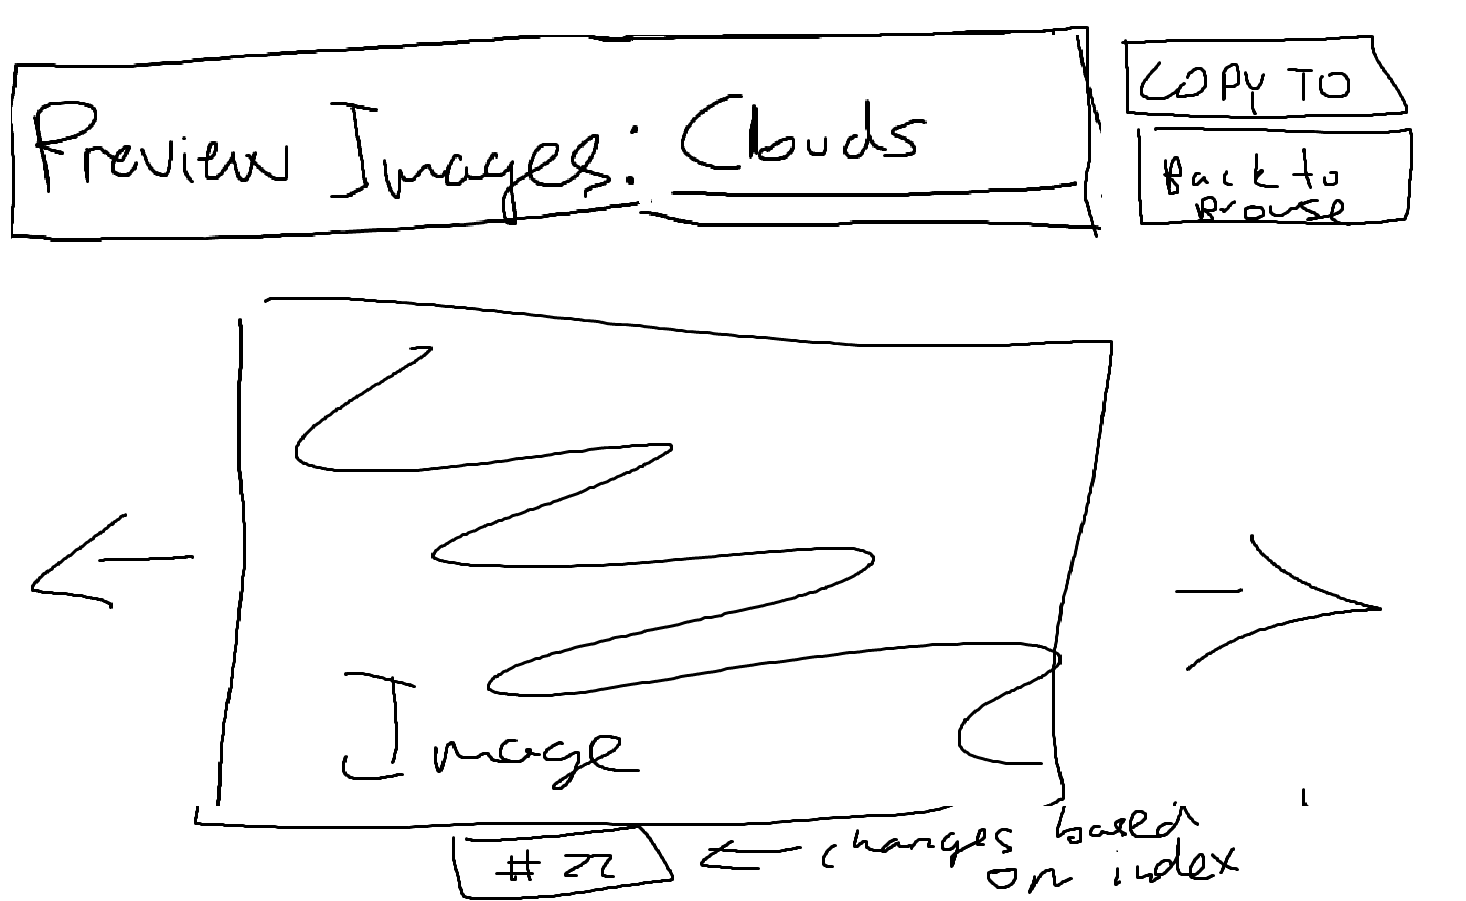 Preview Images: Clouds
COPY TO
Back to
Browse
Image
# 22
← changes based
on index